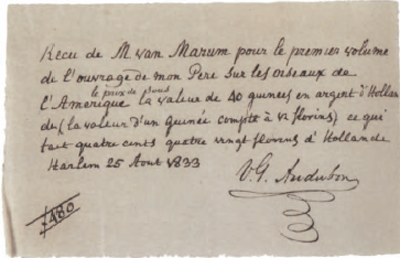 Recu de M van Marum pour le premier volume
de l'ouvrage de mon Pere sur les oiseaux de
le prix de
l'Amerique la valeur de 40 guinees en argent d'Hollan
de (la valeur d'un guinée compté à 12 florins) ce qui
fait quatre cents quatre vingt florins d'Hollande
Harlem 25 Aout 1833
V. G. Audubon
f 480